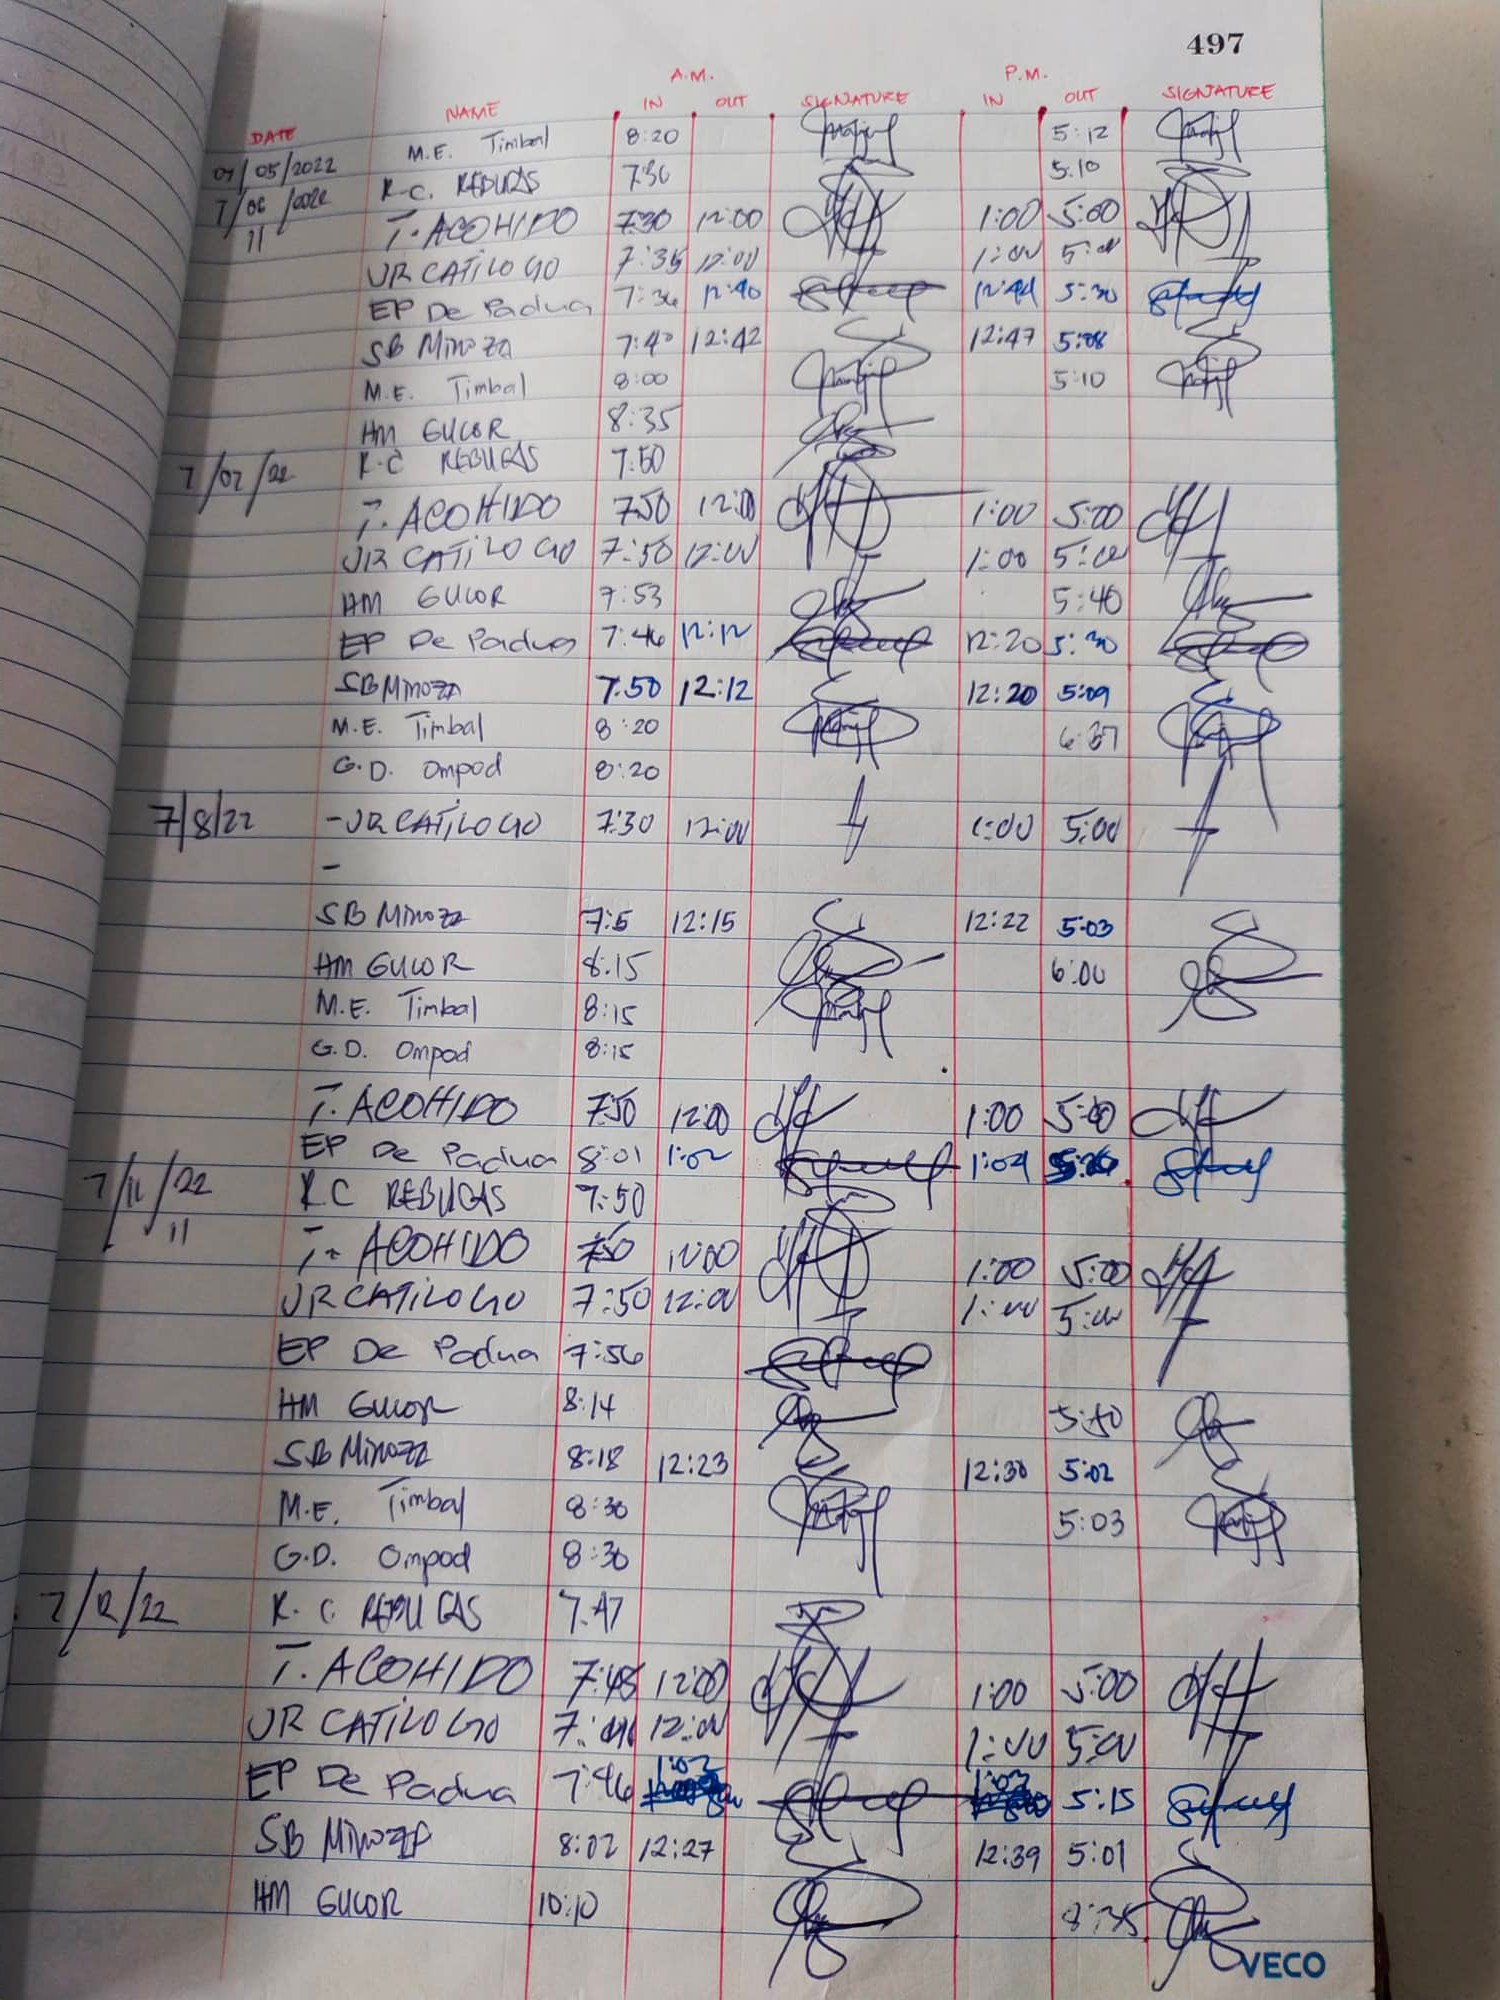 497
A.M. P.M.
DATE NAME IN OUT SIGNATURE IN OUT SIGNATURE
07/05/2022 M.E. Timbal 8:20 5:12
7/06/2022 R.C. REBUGAS 7:36 5:10
11 T. ACOHIDO 7:30 12:00 1:00 5:00
JR CATILOGO 7:35 12:00 1:00 5:00
EP De Padua 7:36 12:40 12:44 5:30
SB Minoza 7:40 12:42 12:47 5:08
M.E. Timbal 8:00 5:10
HM GUCOR 8:35
7/07/22 R.C REBUGAS 7:50
T. ACOHIDO 7:50 12:00 1:00 5:00
JR CATILOGO 7:50 12:00 1:00 5:00
HM GUCOR 7:53 5:40
EP De Padua 7:46 12:12 12:20 5:30
SB Minoza 7:50 12:12 12:20 5:09
M.E. Timbal 8:20 6:37
G.D. Ompod 8:20
7/8/22 - JR CATILOGO 7:30 12:00 1:00 5:00
-
SB Minoza 7:5 12:15 12:22 5:03
HM GUCOR 8:15 6:00
M.E. Timbal 8:15
G.D. Ompod 8:15
T. ACOHIDO 7:50 12:00 1:00 5:00
EP De Padua 8:01 1:02 1:04
7/11/22 R.C REBUGAS 7:50
11 T. ACOHIDO 7:50 12:00 1:00 5:00
JR CATILOGO 7:50 12:00 1:00 5:00
EP De Padua 7:56
HM Gucor 8:14 5:40
SB Minoza 8:18 12:23 12:30 5:02
M.E. Timbal 8:30 5:03
G.D. Ompod 8:30
7/12/22 R.C. REBUGAS 7:47
T. ACOHIDO 7:48 12:00 1:00 5:00
JR CATILOGO 12:00 1:00 5:00
EP De Padua 7:46 1:03 1:03 5:15
SB Minoza 8:02 12:27 12:39 5:01
HM GUCOR 10:10 8:35
VECO